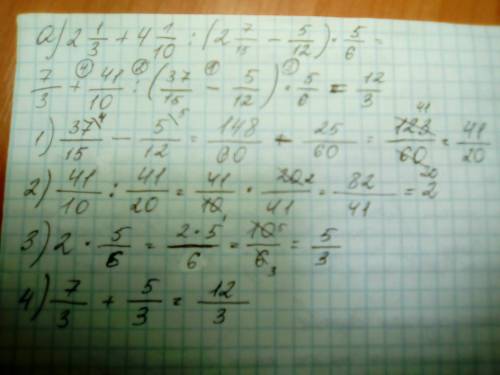 а) 2 1/3 + 4 1/10 : (2 7/15 − 5/12) · 5/6 =
7/3 + 41/10 : (37/15 − 5/12) · 5/6 = 12/3
1) 37/15 − 5/12 = 148/60 − 25/60 = 123/60 = 41/20
2) 41/10 : 41/20 = 41/10 · 20/41 = 82/41 = 2
3) 2 · 5/6 = 2·5/6 = 10/6 = 5/3
4) 7/3 + 5/3 = 12/3